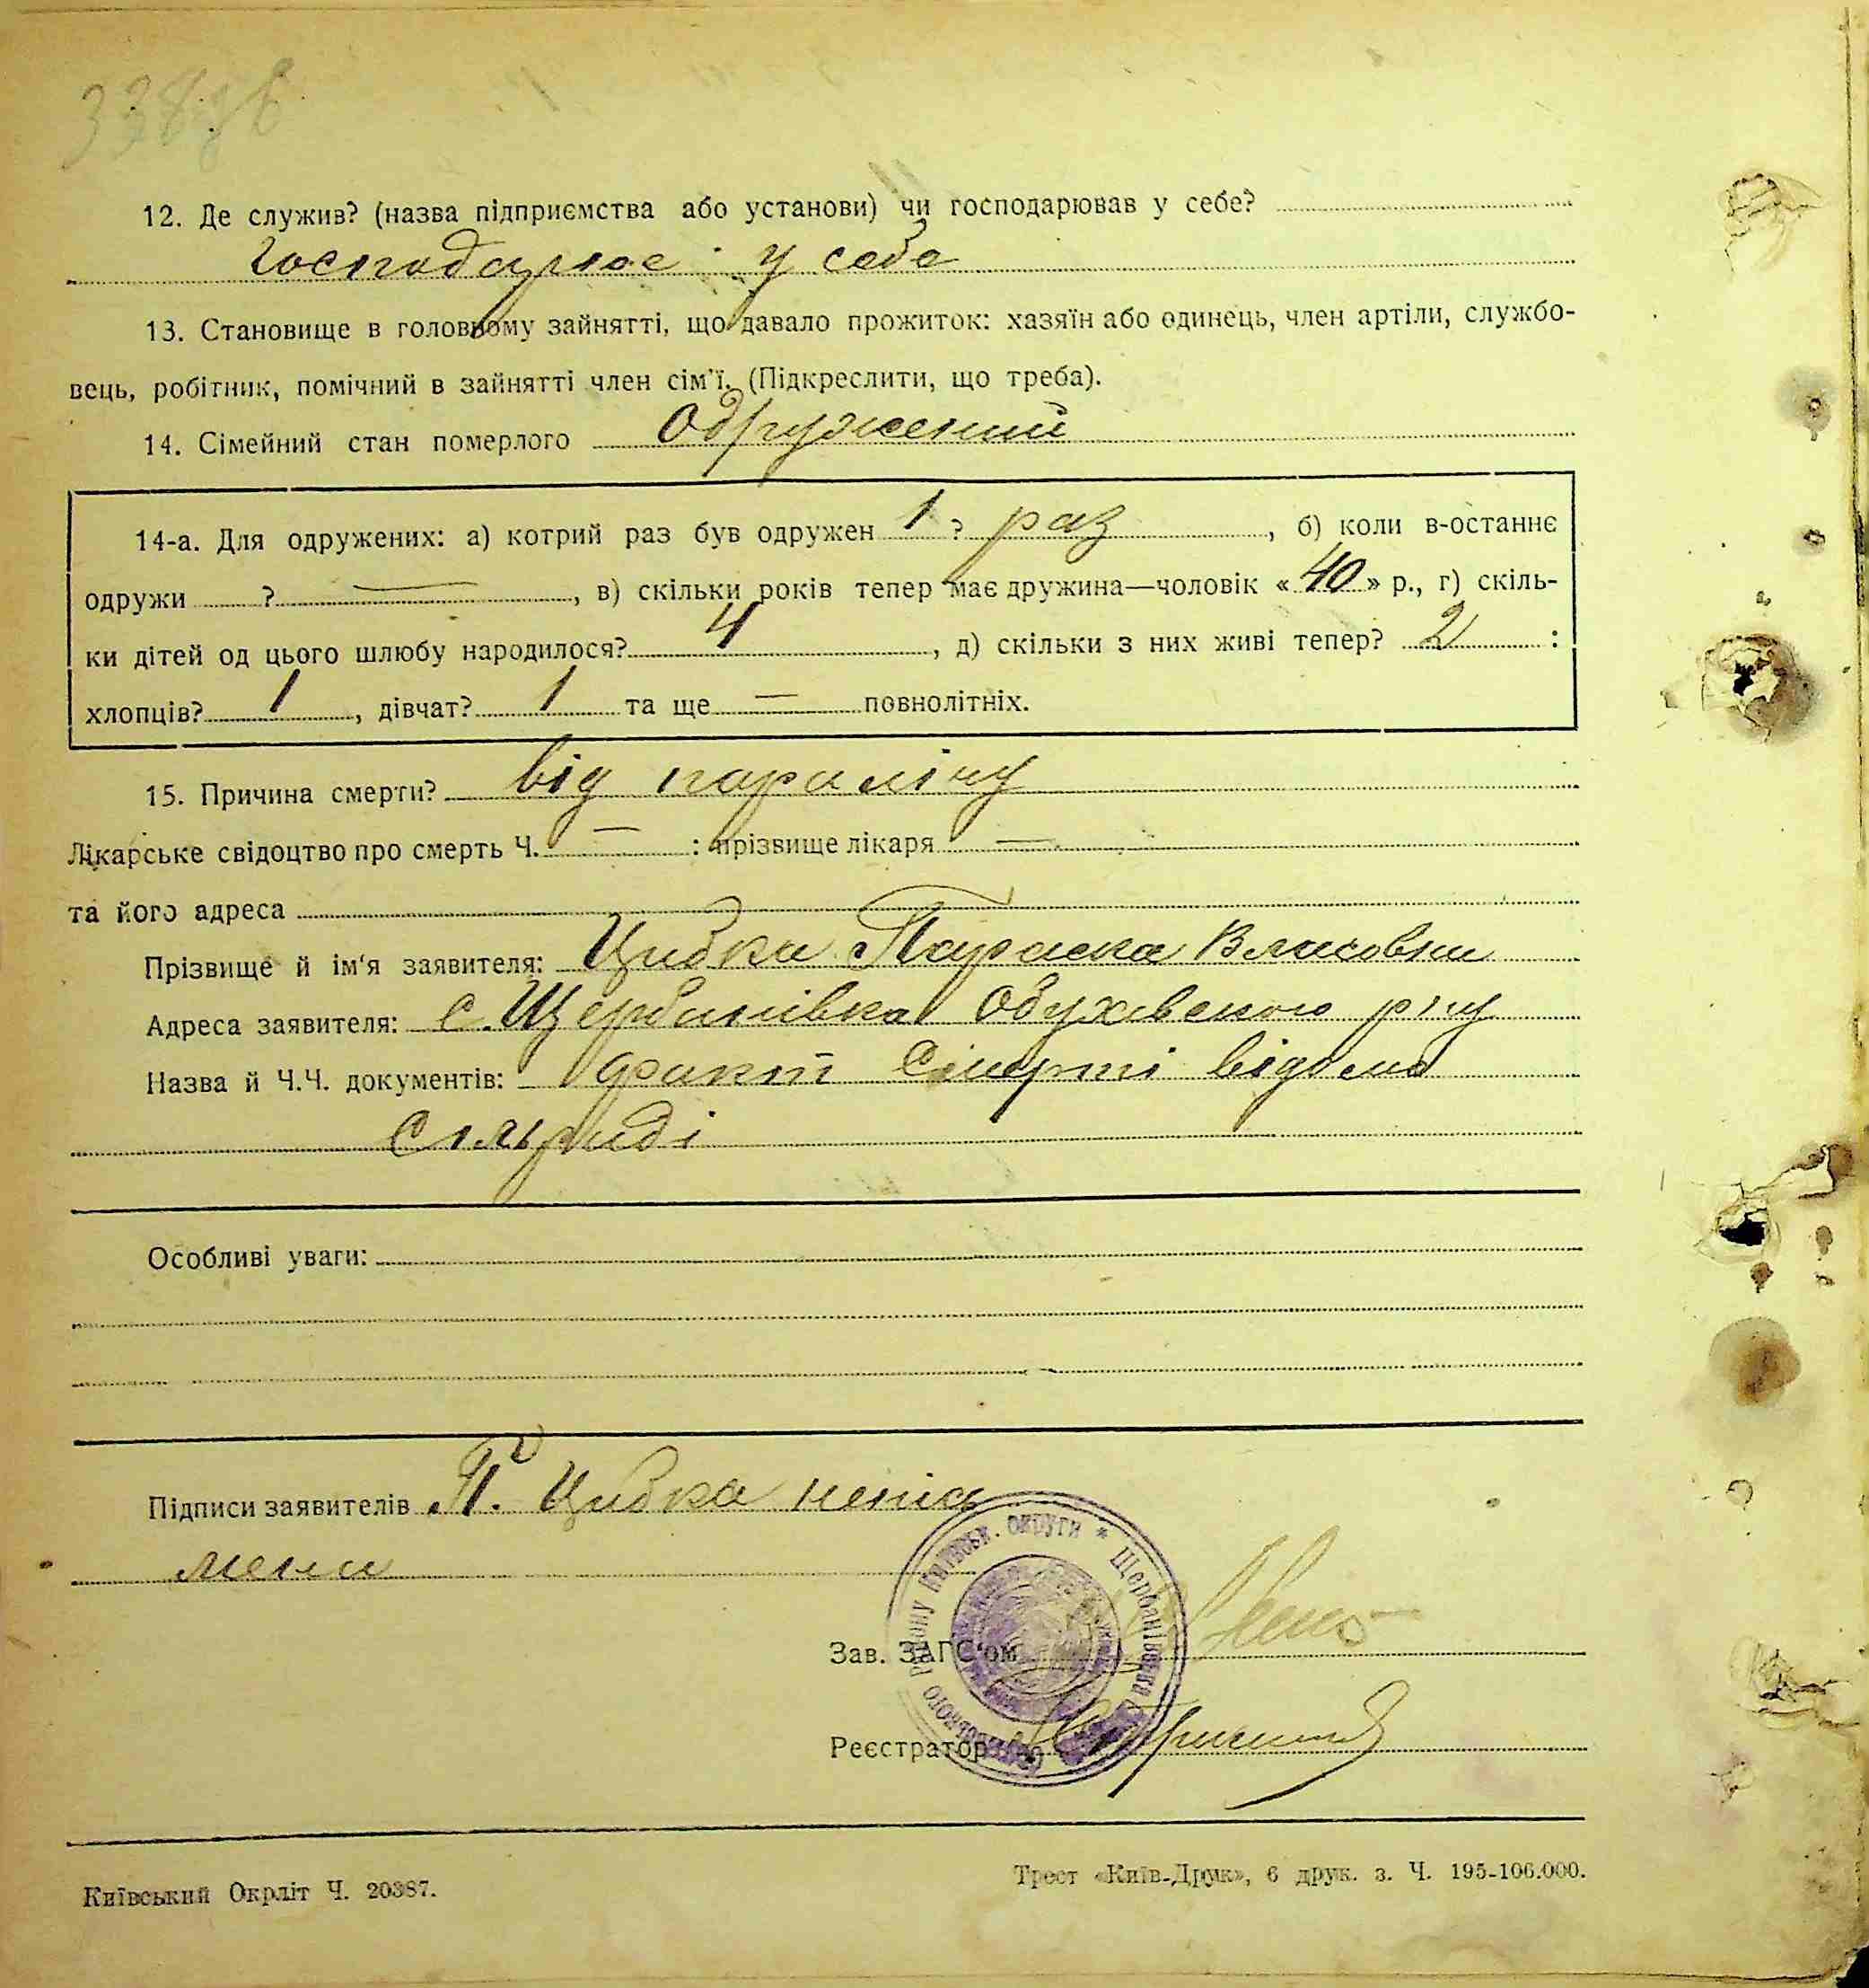 338зв
12. Де служив? (назва підприємства або установи) чи господарював у себе?
Господарює у себе
13. Становище в головному зайнятті, що давало прожиток: хазяїн або одинець, член артіли, службо-
вець, робітник, помічний в зайнятті член сім'ї. (Підкреслити, що треба).
14. Сімейний стан померлого Одружений
14-а. Для одружених: а) котрий раз був одружен 1 ? раз, б) коли в-останнє
одружи ? —, в) скільки років тепер має дружина—чоловік «40» р., г) скіль-
ки дітей од цього шлюбу народилося? 4, д) скільки з них живі тепер? 2 :
хлопців? 1, дівчат? 1 та ще — повнолітніх.
15. Причина смерти? від параліча
Лікарське свідоцтво про смерть Ч. — : прізвище лікаря —
та його адреса
Прізвище й ім'я заявителя: Цибка Параска Власовна
Адреса заявителя: с. Щербанівка Обухівського р-ну
Назва й Ч.Ч. документів: факт смерті відомо
Сільраді
Особливі уваги:
Підписи заявителів П. Цибка непис
мена
Зав. ЗАГС'ом
Реєстратор
району Київськ. округи * Щербанівська
Київський Окрліт Ч. 20387.
Трест «Київ-Друк», 6 друк. з. Ч. 195-106.000.